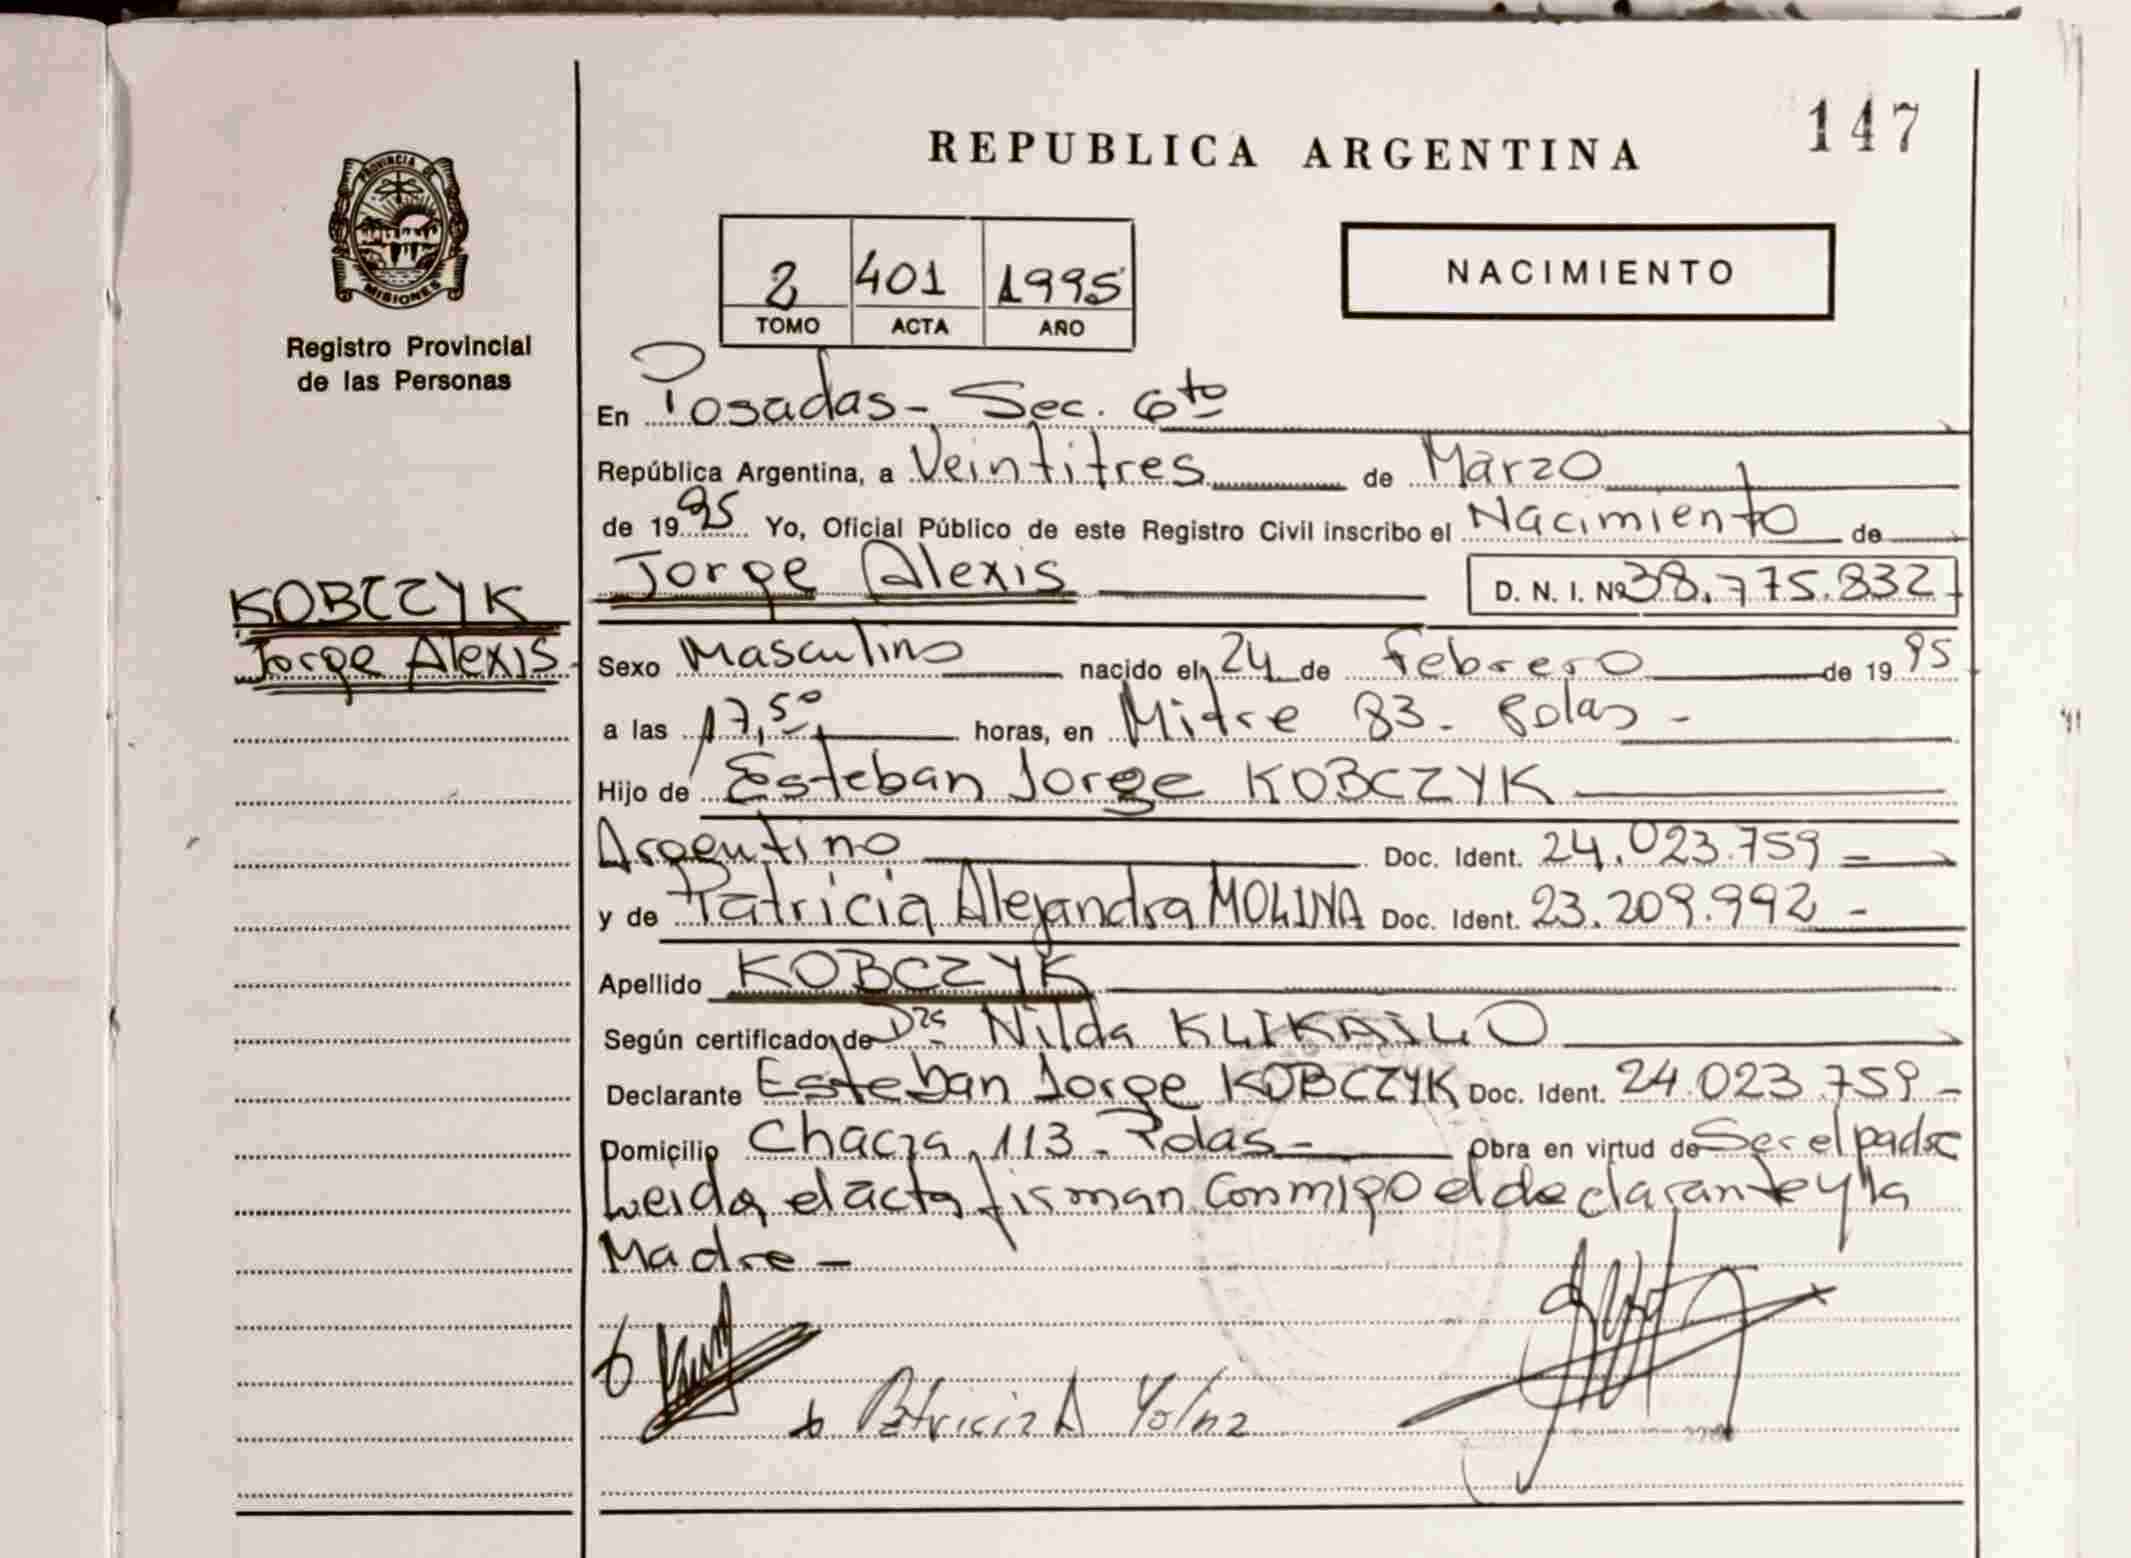 147
REPUBLICA ARGENTINA
PROVINCIA DE
MISIONES
Registro Provincial
de las Personas
2 401 1995
TOMO ACTA AÑO
NACIMIENTO
En Posadas - Sec. 6to
República Argentina, a Veintitres de Marzo
de 1995 Yo, Oficial Público de este Registro Civil inscribo el Nacimiento de
KOBCZYK
Jorge Alexis
Jorge Alexis D. N. I. Nº 38.775.832
Sexo Masculino nacido el 24 de Febrero de 1995
a las 17,50 horas, en Mitre 83 -
Hijo de Esteban Jorge KOBCZYK
Argentino Doc. Ident. 24.023.759 =
y de Patricia Alejandra MOLINA Doc. Ident. 23.209.992 -
Apellido KOBCZYK
Según certificado de Dra Nilda KLIKAILO
Declarante Esteban Jorge KOBCZYK Doc. Ident. 24.023.759 -
Domicilio Chacra 113 - Pdas - Obra en virtud de Ser el padre
Leida el acta firman conmigo el declarante y la
Madre -
Patricia A